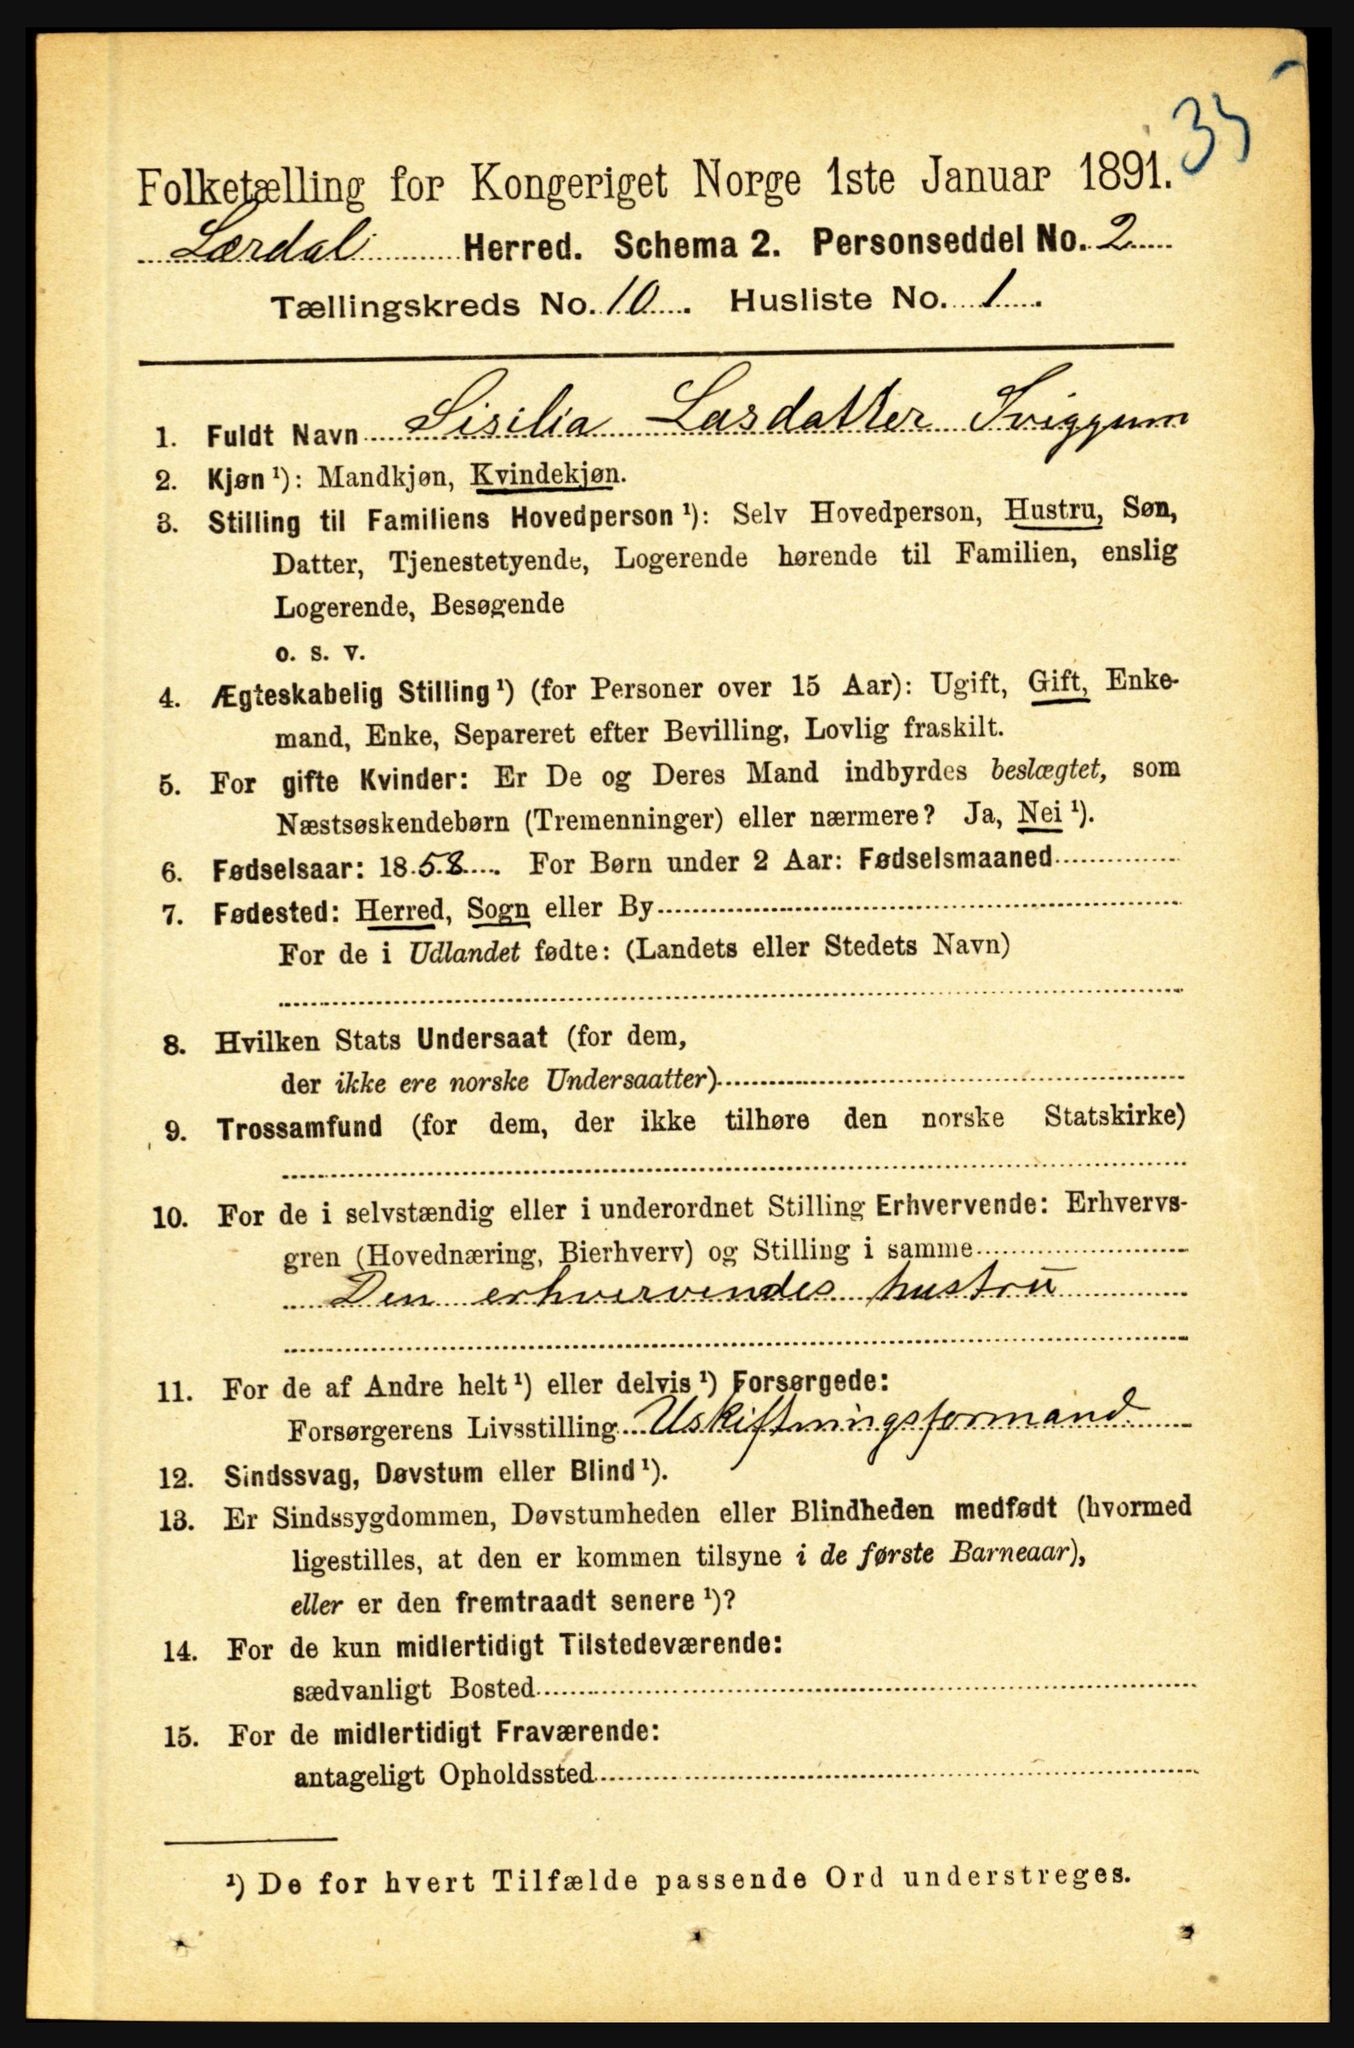 35
Folketælling for Kongeriget Norge 1ste Januar 1891.
Lærdal Herred. Schema 2. Personseddel No. 2
Tællingskreds No. 10. Husliste No. 1.
1. Fuldt Navn Sisilia Larsdatter Sviggum
2. Kjøn ¹): Mandkjøn, Kvindekjøn.
3. Stilling til Familiens Hovedperson ¹): Selv Hovedperson, Hustru, Søn,
Datter, Tjenestetyende, Logerende hørende til Familien, enslig
Logerende, Besøgende
o. s. v.
4. Ægteskabelig Stilling ¹) (for Personer over 15 Aar): Ugift, Gift, Enke-
mand, Enke, Separeret efter Bevilling, Lovlig fraskilt.
5. For gifte Kvinder: Er De og Deres Mand indbyrdes beslægtet, som
Næstsøskendebørn (Tremenninger) eller nærmere? Ja, Nei ¹).
6. Fødselsaar: 1858. For Børn under 2 Aar: Fødselsmaaned
7. Fødested: Herred, Sogn eller By
For de i Udlandet fødte: (Landets eller Stedets Navn)
8. Hvilken Stats Undersaat (for dem,
der ikke ere norske Undersaatter)
9. Trossamfund (for dem, der ikke tilhøre den norske Statskirke)
10. For de i selvstændig eller i underordnet Stilling Erhvervende: Erhvervs-
gren (Hovednæring, Bierhverv) og Stilling i samme
Den erhvervendes hustru
11. For de af Andre helt ¹) eller delvis ¹) Forsørgede:
Forsørgerens Livsstilling Uskiftningsformand
12. Sindssvag, Døvstum eller Blind ¹).
13. Er Sindssygdommen, Døvstumheden eller Blindheden medfødt (hvormed
ligestilles, at den er kommen tilsyne i de første Barneaar),
eller er den fremtraadt senere ¹)?
14. For de kun midlertidigt Tilstedeværende:
sædvanligt Bosted
15. For de midlertidigt Fraværende:
antageligt Opholdssted
¹) De for hvert Tilfælde passende Ord understreges.